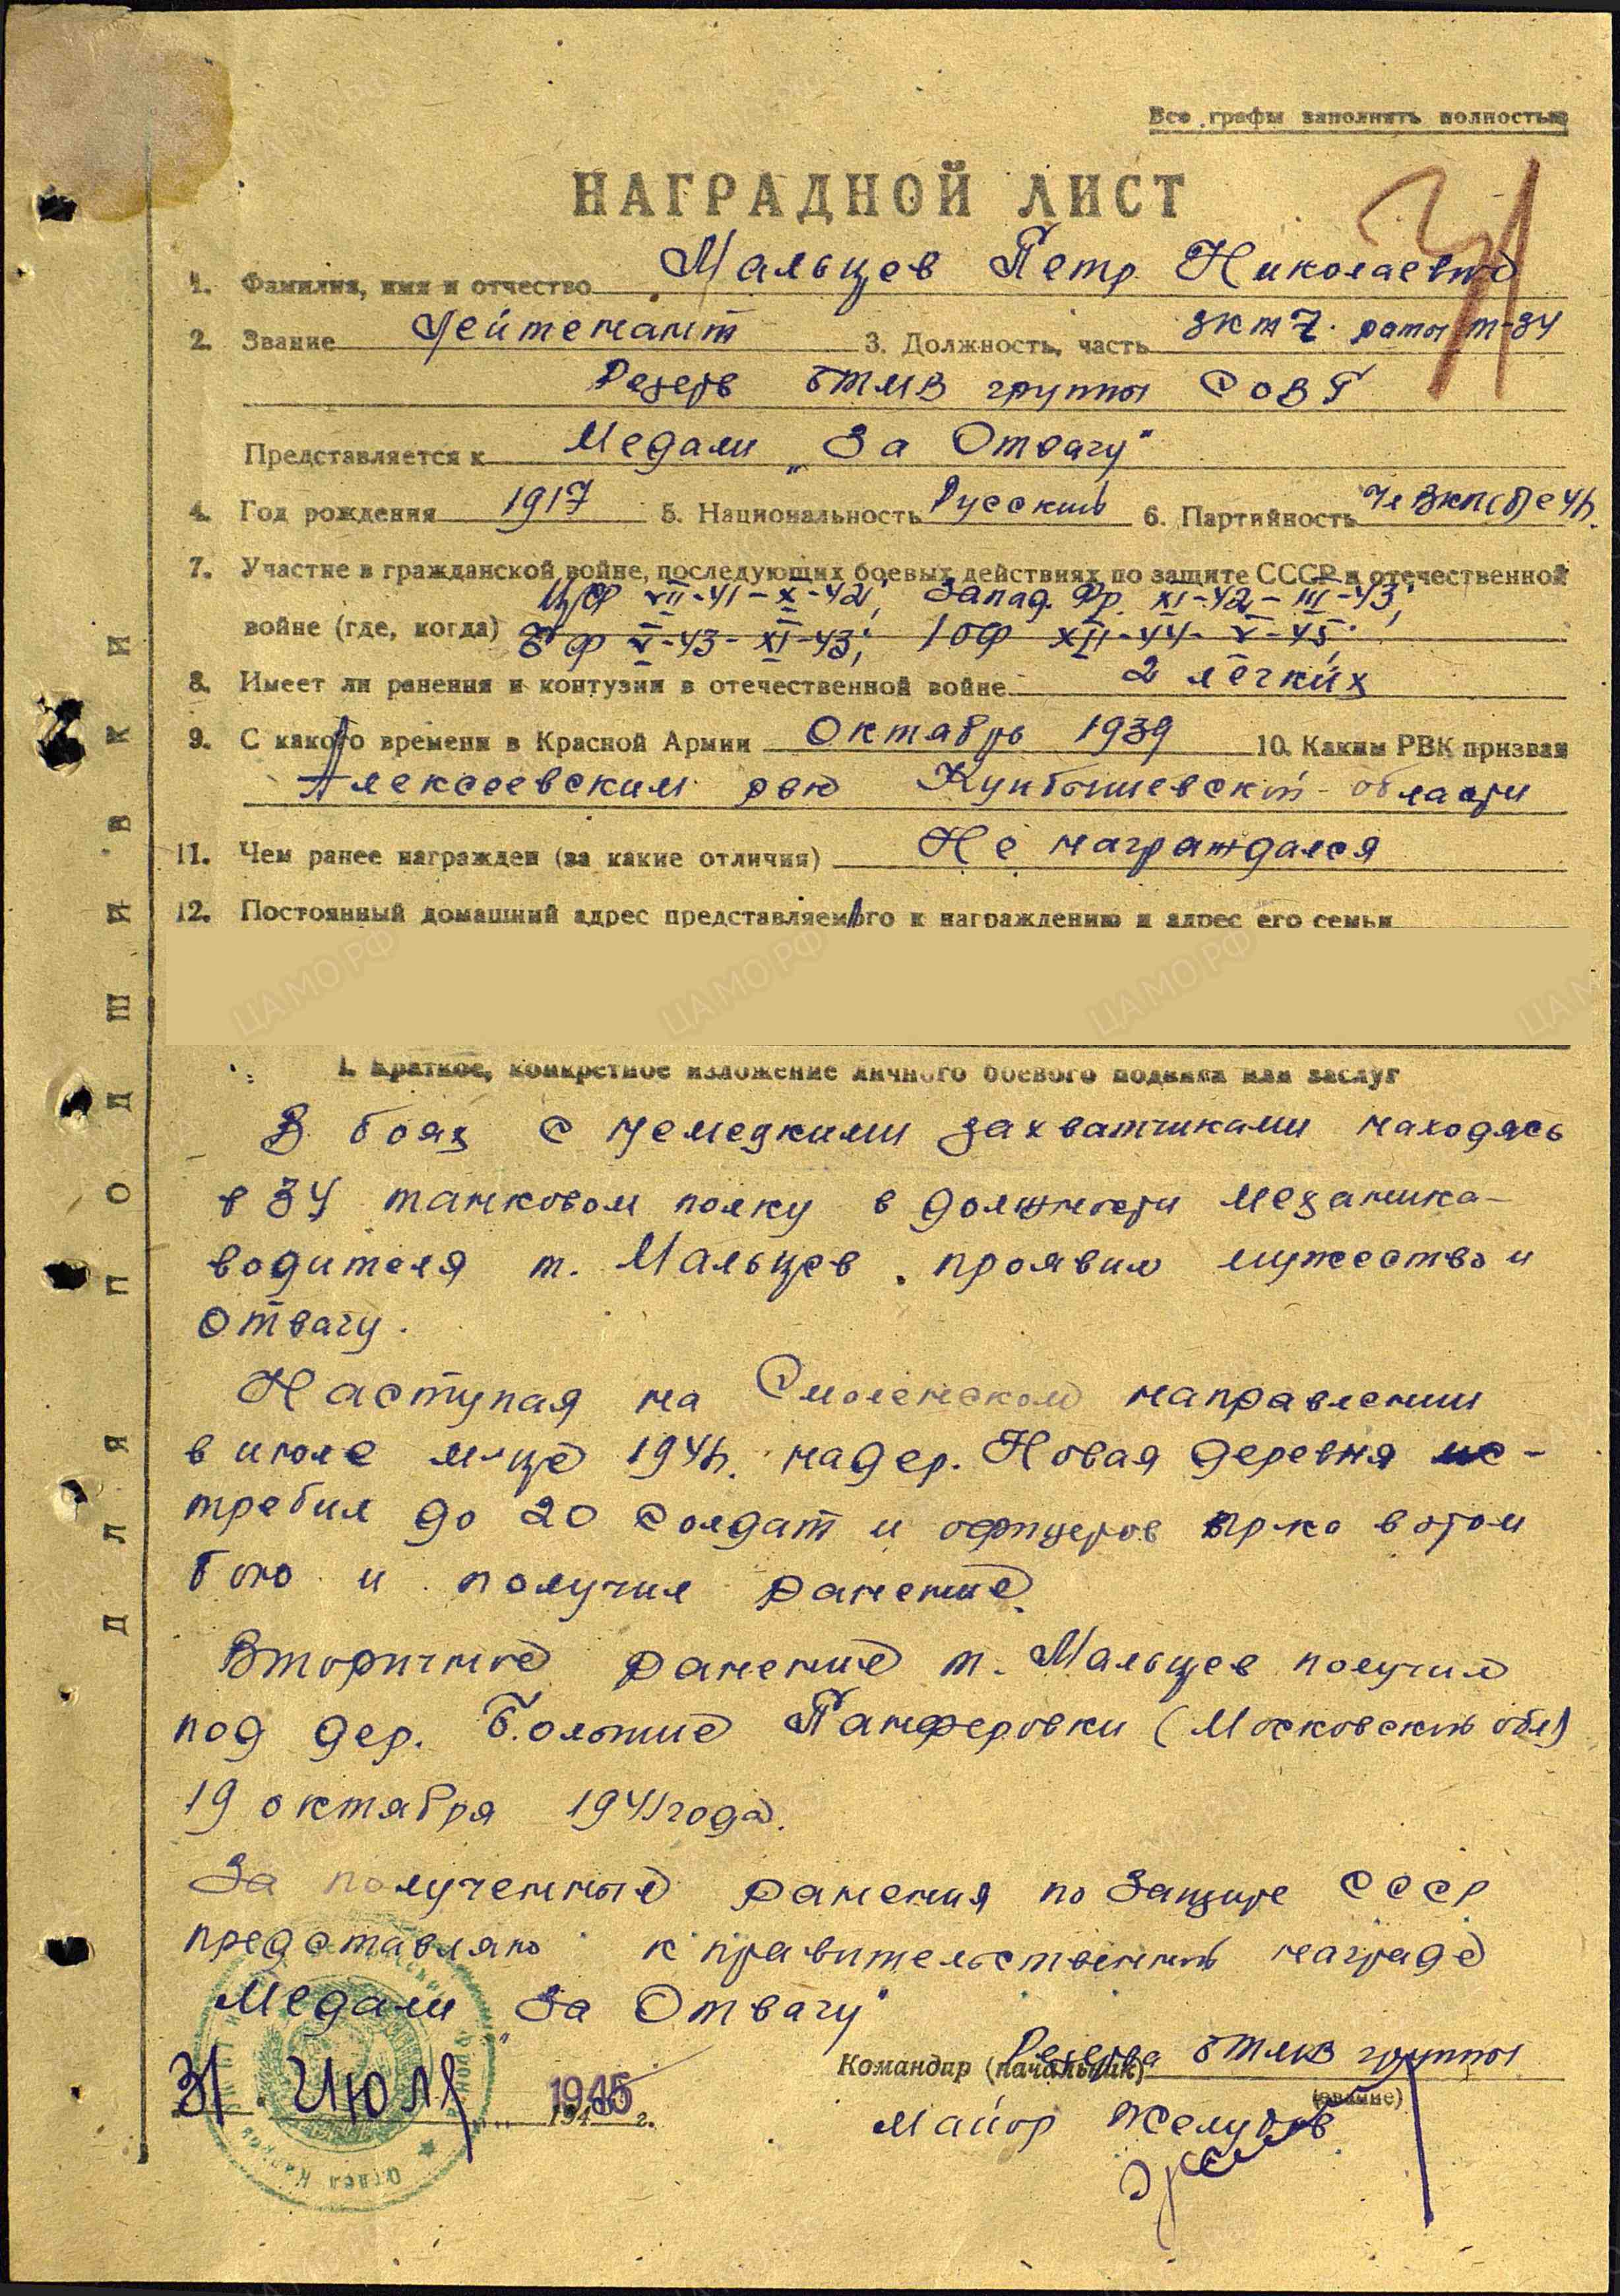 Все графы заполнять полностью
НАГРАДНОЙ ЛИСТ
1. Фамилия, имя и отчество Мальцев Петр Николаевич
2. Звание Лейтенант 3. Должность, часть роты т-34
Резерв БТМВ группы СОВГ
Представляется к Медали „За Отвагу"
4. Год рождения 1917 5. Национальность Русский 6. Партийность Чл ВКП(б) с 41г.
7. Участие в гражданской войне, последующих боевых действиях по защите СССР и отечественной
ЦФ VII-41-X-42; Запад. Фр. XI-42-III-43;
войне (где, когда) V-43-XI-43; XII-44-V-45.
8. Имеет ли ранения и контузии в отечественной войне 2 легких
9. С какого времени в Красной Армии Октябрь 1939 10. Каким РВК призван
Алексеевским рвк Куйбышевской области
11. Чем ранее награжден (за какие отличия) Не награждался
12. Постоянный домашний адрес представляемого к награждению и адрес его семьи
I. Краткое, конкретное изложение личного боевого подвига или заслуг
В боях с немецкими захватчиками находясь
в 34 танковом полку в должности механика-
водителя т. Мальцев проявил мужество и
отвагу.
Наступая на Смоленском направлении
в июле м-це 1941г. на дер. Новая деревня ис-
требил до 20 солдат и офицеров пр-ка в этом
бою и получил ранение.
Вторичное ранение т. Мальцев получил
под дер. Большие Панферовки (Московской обл)
19 октября 1941 года.
За полученные ранения по защите СССР
представляю к правительственной награде
Медали „За Отвагу"
31 Июля 1945 г.
Командир (начальник) Резерва БТМВ группы
(звание)
Майор
ДЛЯ ПОДШИВКИ
ЦАМО РФ